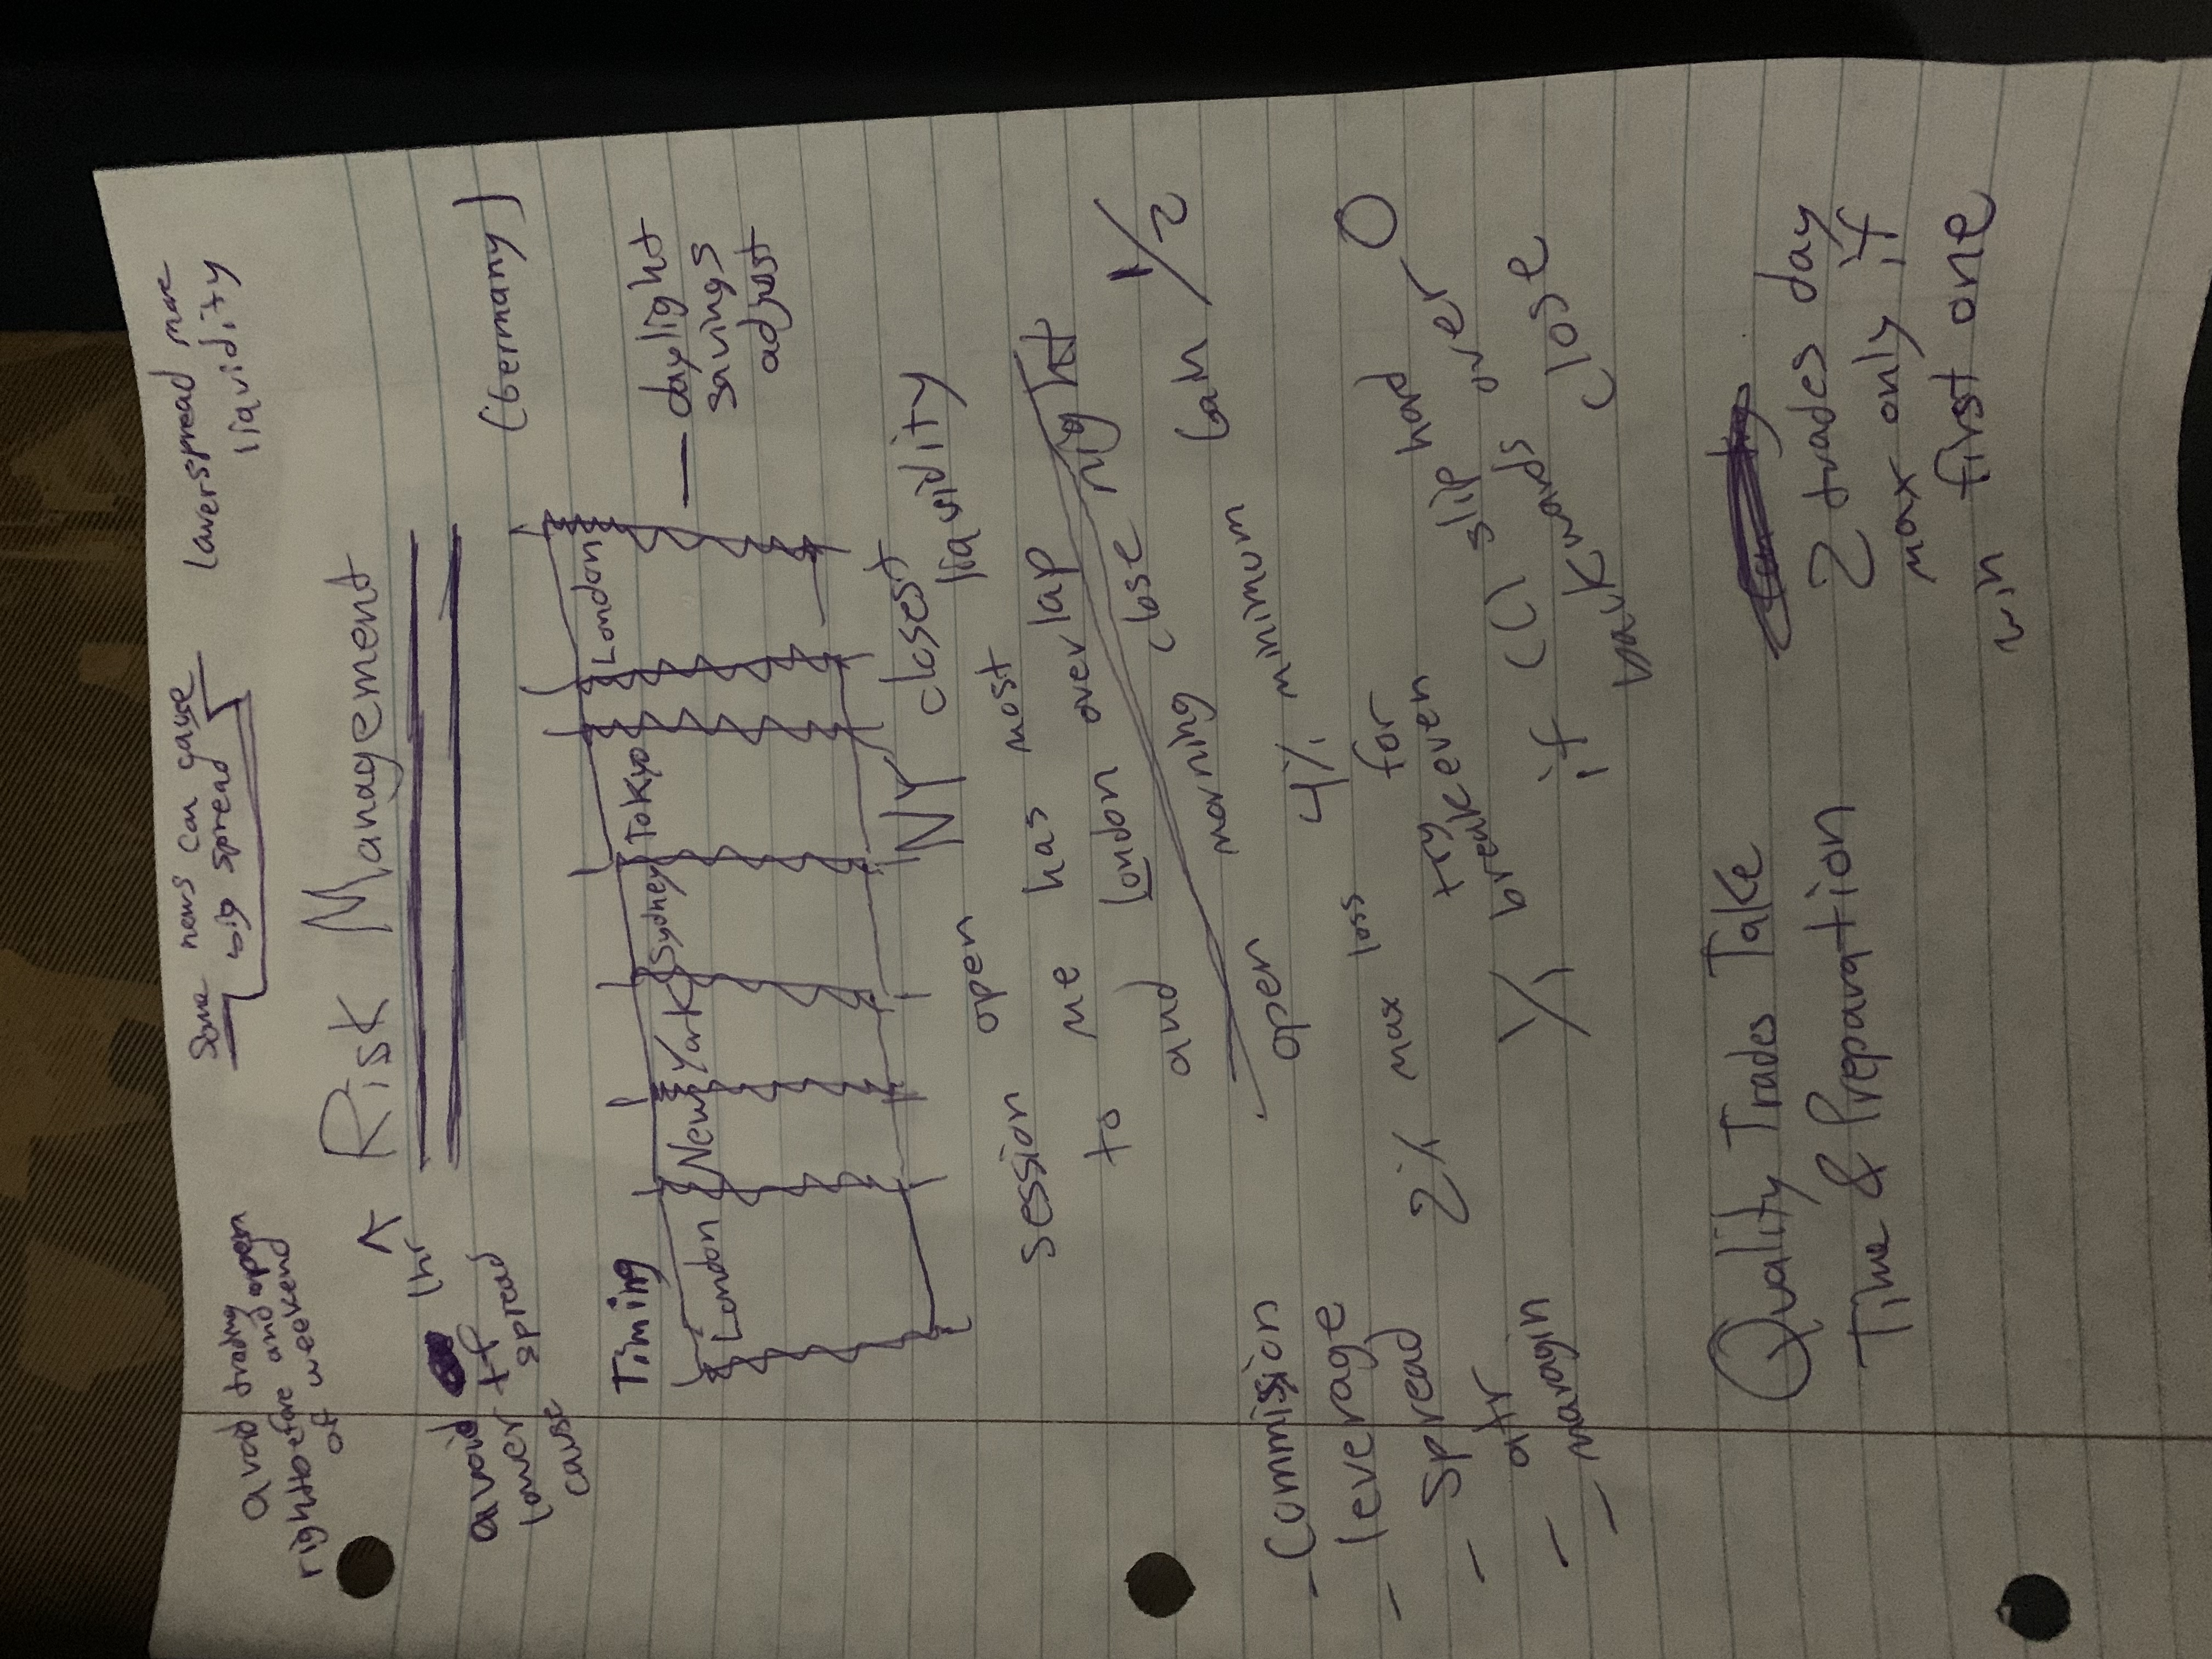 avoid trading
right before and open
of weekend
Some news can cause
big spread
lower spread more
liquidity
^ Risk Management
1hr
avoid
lower tf
cause spread
(Germany)
Timing
London New York Sydney Tokyo London
— daylight
savings
adjust
NY closest
session open most liquidity
to me has overlap
and London overlap night
morning close
open
6am 1/2
- Commission
- leverage
- spread
- atr
- maragin
4% minimum
2% max loss for
try
1/1 break even
if CCI slip over
backwards close
0
Quality Trades Take
Time & Preparation
2 trades day
max only if
win first one